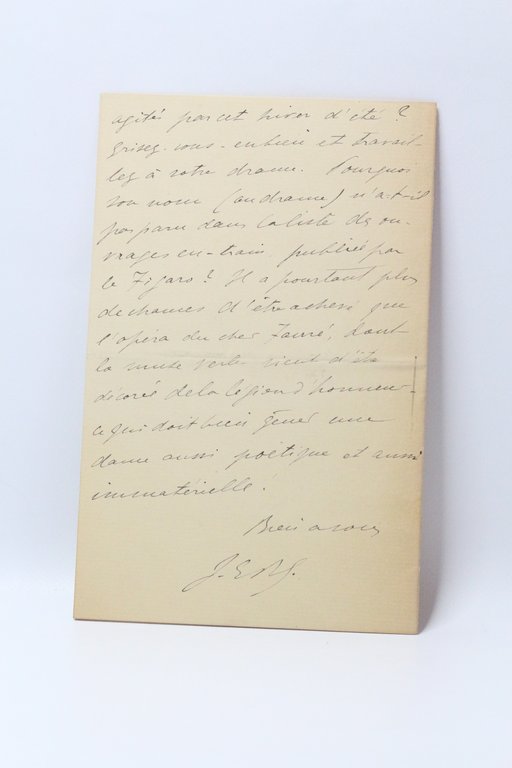 agités par cet hiver d'été ?
Grisez-vous-en bien et travail-
lez à votre drame. Pourquoi
son nom (au drame) n'a-t-il
pas paru dans la liste des ou-
vrages en-train, publiée par
le Figaro ? Il a pourtant plus
de chances d'être achevé que
l'opéra du cher Fauré, dont
la muse verte vient d'être
décorée de la légion d'honneur -
ce qui doit bien gêner une
dame aussi poétique et aussi
immatérielle !
Bien à vous